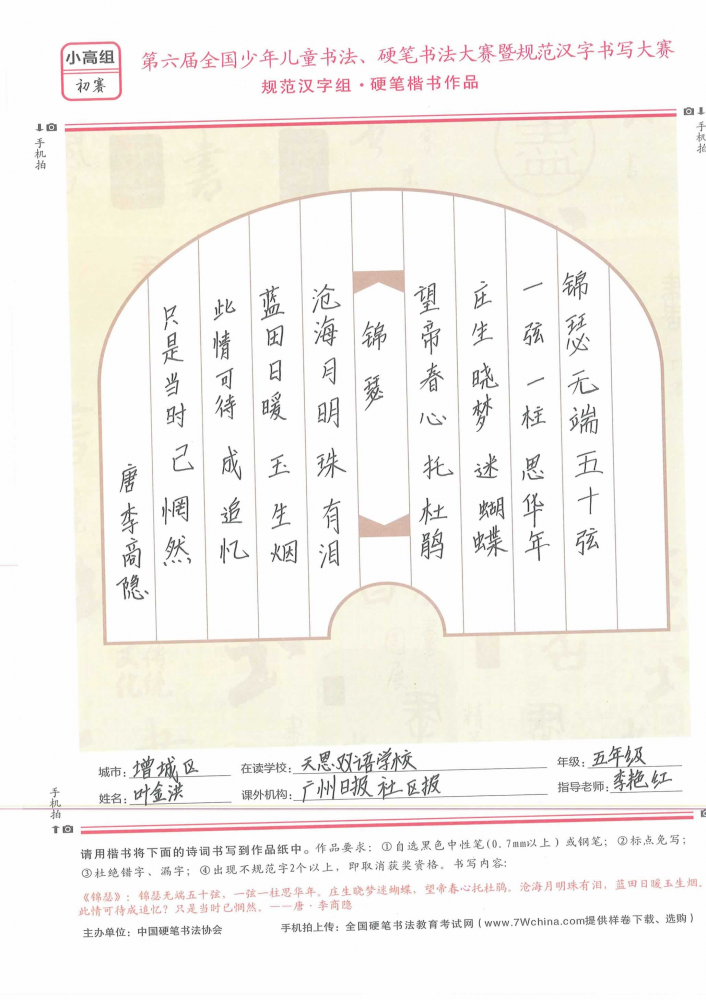 小高组
初赛
第六届全国少年儿童书法、硬笔书法大赛暨规范汉字书写大赛
规范汉字组·硬笔楷书作品
手机拍
手机拍
锦瑟无端五十弦
一弦一柱思华年
庄生晓梦迷蝴蝶
望帝春心托杜鹃
锦瑟
沧海月明珠有泪
蓝田日暖玉生烟
此情可待成追忆
只是当时已惘然
唐李商隐
城市：增城区 在读学校：天思双语学校 年级：五年级
姓名：叶金洪 课外机构：广州日报社区报 指导老师：李艳红
手机拍
请用楷书将下面的诗词书写到作品纸中。作品要求：①自选黑色中性笔(0.7mm以上）或钢笔；②标点免写；
③杜绝错字、漏字；④出现不规范字2个以上，即取消获奖资格。书写内容：
《锦瑟》：锦瑟无端五十弦，一弦一柱思华年。庄生晓梦迷蝴蝶，望帝春心托杜鹃。沧海月明珠有泪，蓝田日暖玉生烟。
此情可待成追忆？只是当时已惘然。——唐·李商隐
主办单位：中国硬笔书法协会 手机拍上传：全国硬笔书法教育考试网（www.7Wchina.com提供样卷下载、选购）